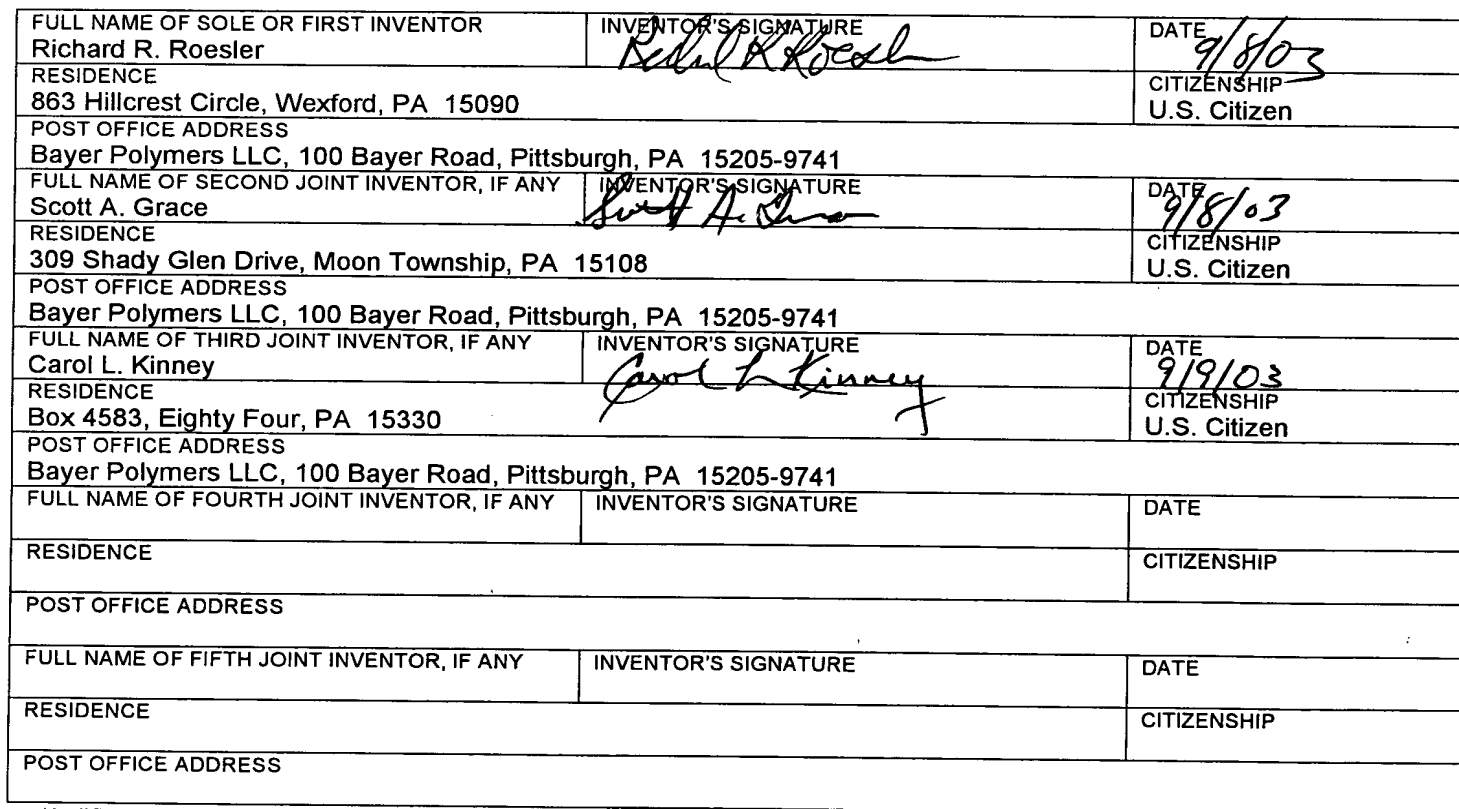 FULL NAME OF SOLE OR FIRST INVENTOR INVENTOR'S SIGNATURE DATE
Richard R. Roesler Richard R Roesler 9/8/03
RESIDENCE CITIZENSHIP
863 Hillcrest Circle, Wexford, PA 15090 U.S. Citizen
POST OFFICE ADDRESS
Bayer Polymers LLC, 100 Bayer Road, Pittsburgh, PA 15205-9741
FULL NAME OF SECOND JOINT INVENTOR, IF ANY INVENTOR'S SIGNATURE DATE
Scott A. Grace Scott A. Grace 9/8/03
RESIDENCE CITIZENSHIP
309 Shady Glen Drive, Moon Township, PA 15108 U.S. Citizen
POST OFFICE ADDRESS
Bayer Polymers LLC, 100 Bayer Road, Pittsburgh, PA 15205-9741
FULL NAME OF THIRD JOINT INVENTOR, IF ANY INVENTOR'S SIGNATURE DATE
Carol L. Kinney Carol L Kinney 9/9/03
RESIDENCE CITIZENSHIP
Box 4583, Eighty Four, PA 15330 U.S. Citizen
POST OFFICE ADDRESS
Bayer Polymers LLC, 100 Bayer Road, Pittsburgh, PA 15205-9741
FULL NAME OF FOURTH JOINT INVENTOR, IF ANY INVENTOR'S SIGNATURE DATE
RESIDENCE CITIZENSHIP
POST OFFICE ADDRESS
FULL NAME OF FIFTH JOINT INVENTOR, IF ANY INVENTOR'S SIGNATURE DATE
RESIDENCE CITIZENSHIP
POST OFFICE ADDRESS